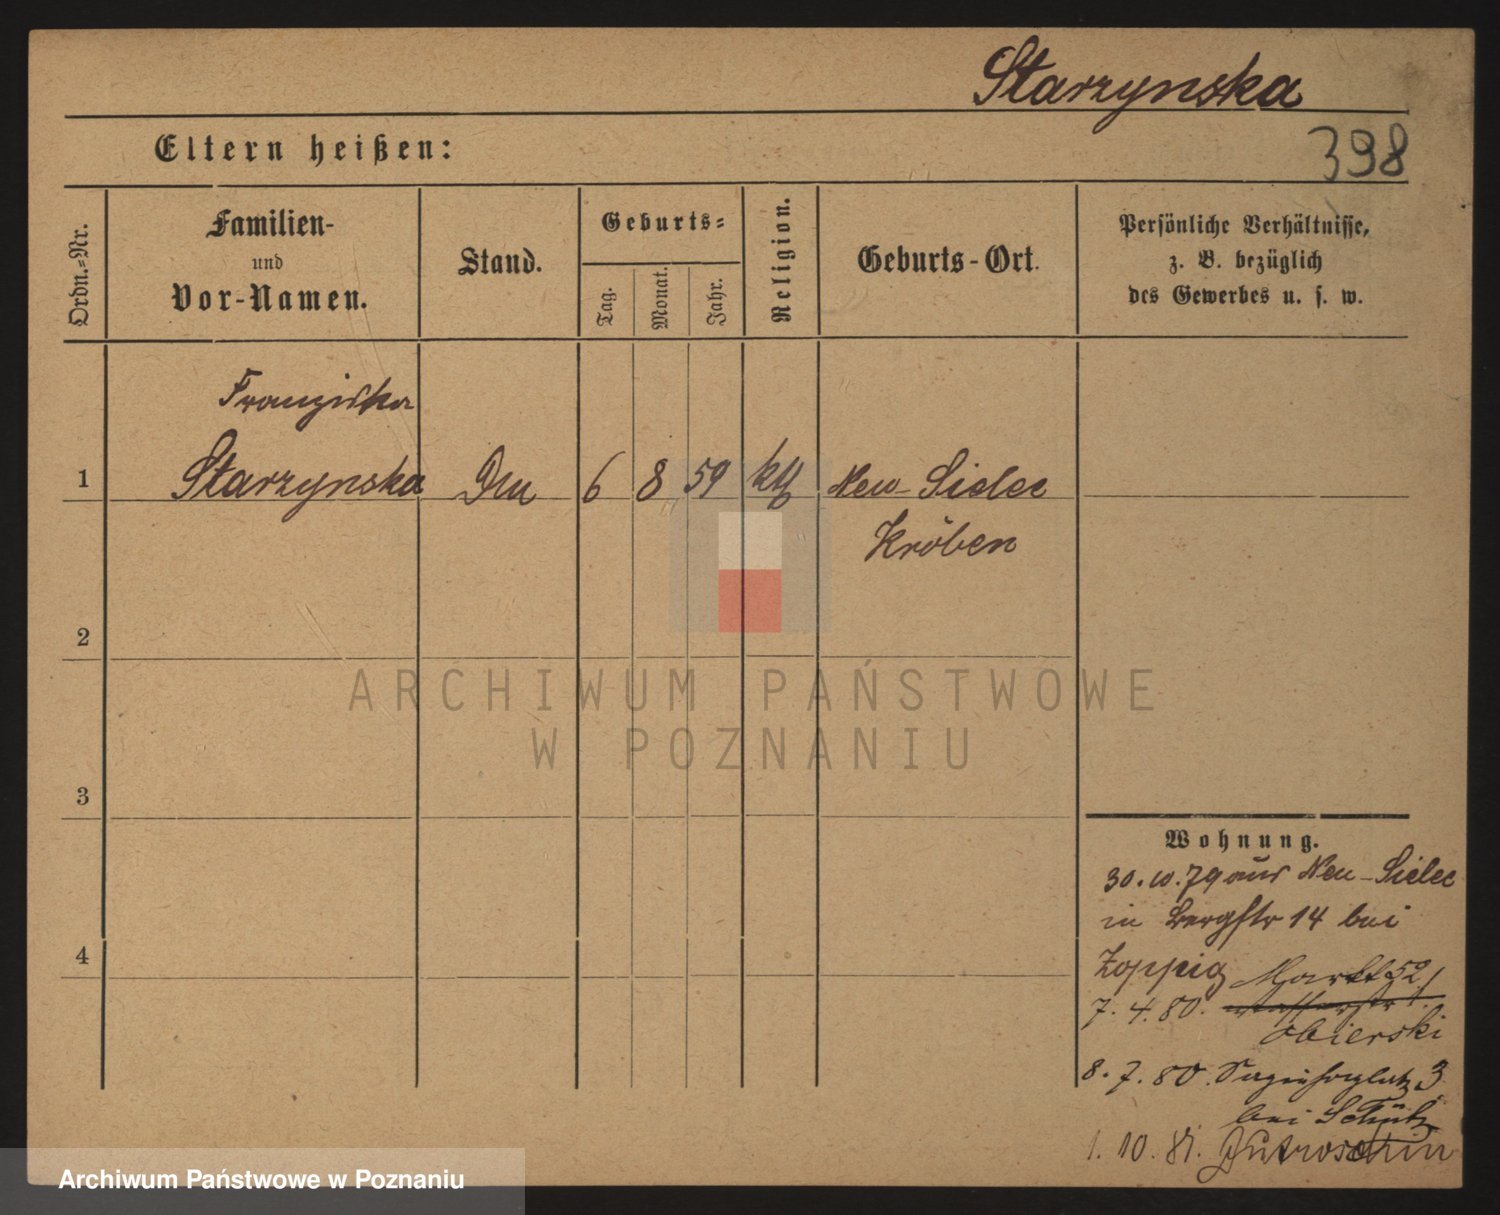 Starzynska
Eltern heißen:
398
Ordn.-Nr.
Familien-
und
Vor-Namen.
Stand.
Geburts-
Tag.
Monat.
Jahr.
Religion.
Geburts-Ort.
Persönliche Verhältnisse,
z. B. bezüglich
des Gewerbes u. s. w.
Franziska
1 Starzynska 6 8 59 kth Neu-Sielec
Kröben
2
ARCHIWUM PAŃSTWOWE
W POZNANIU
3
4
Wohnung.
30.10.79 aus Neu-Sielec
in Bergstr 14 bei
Zoppig Markt 52/
7.4.80. Wasserstr 1.
Obierski
8.7.80. Sapiehaplatz 3
bei Schütz
1.10.81. Jutroschin
Archiwum Państwowe w Poznaniu